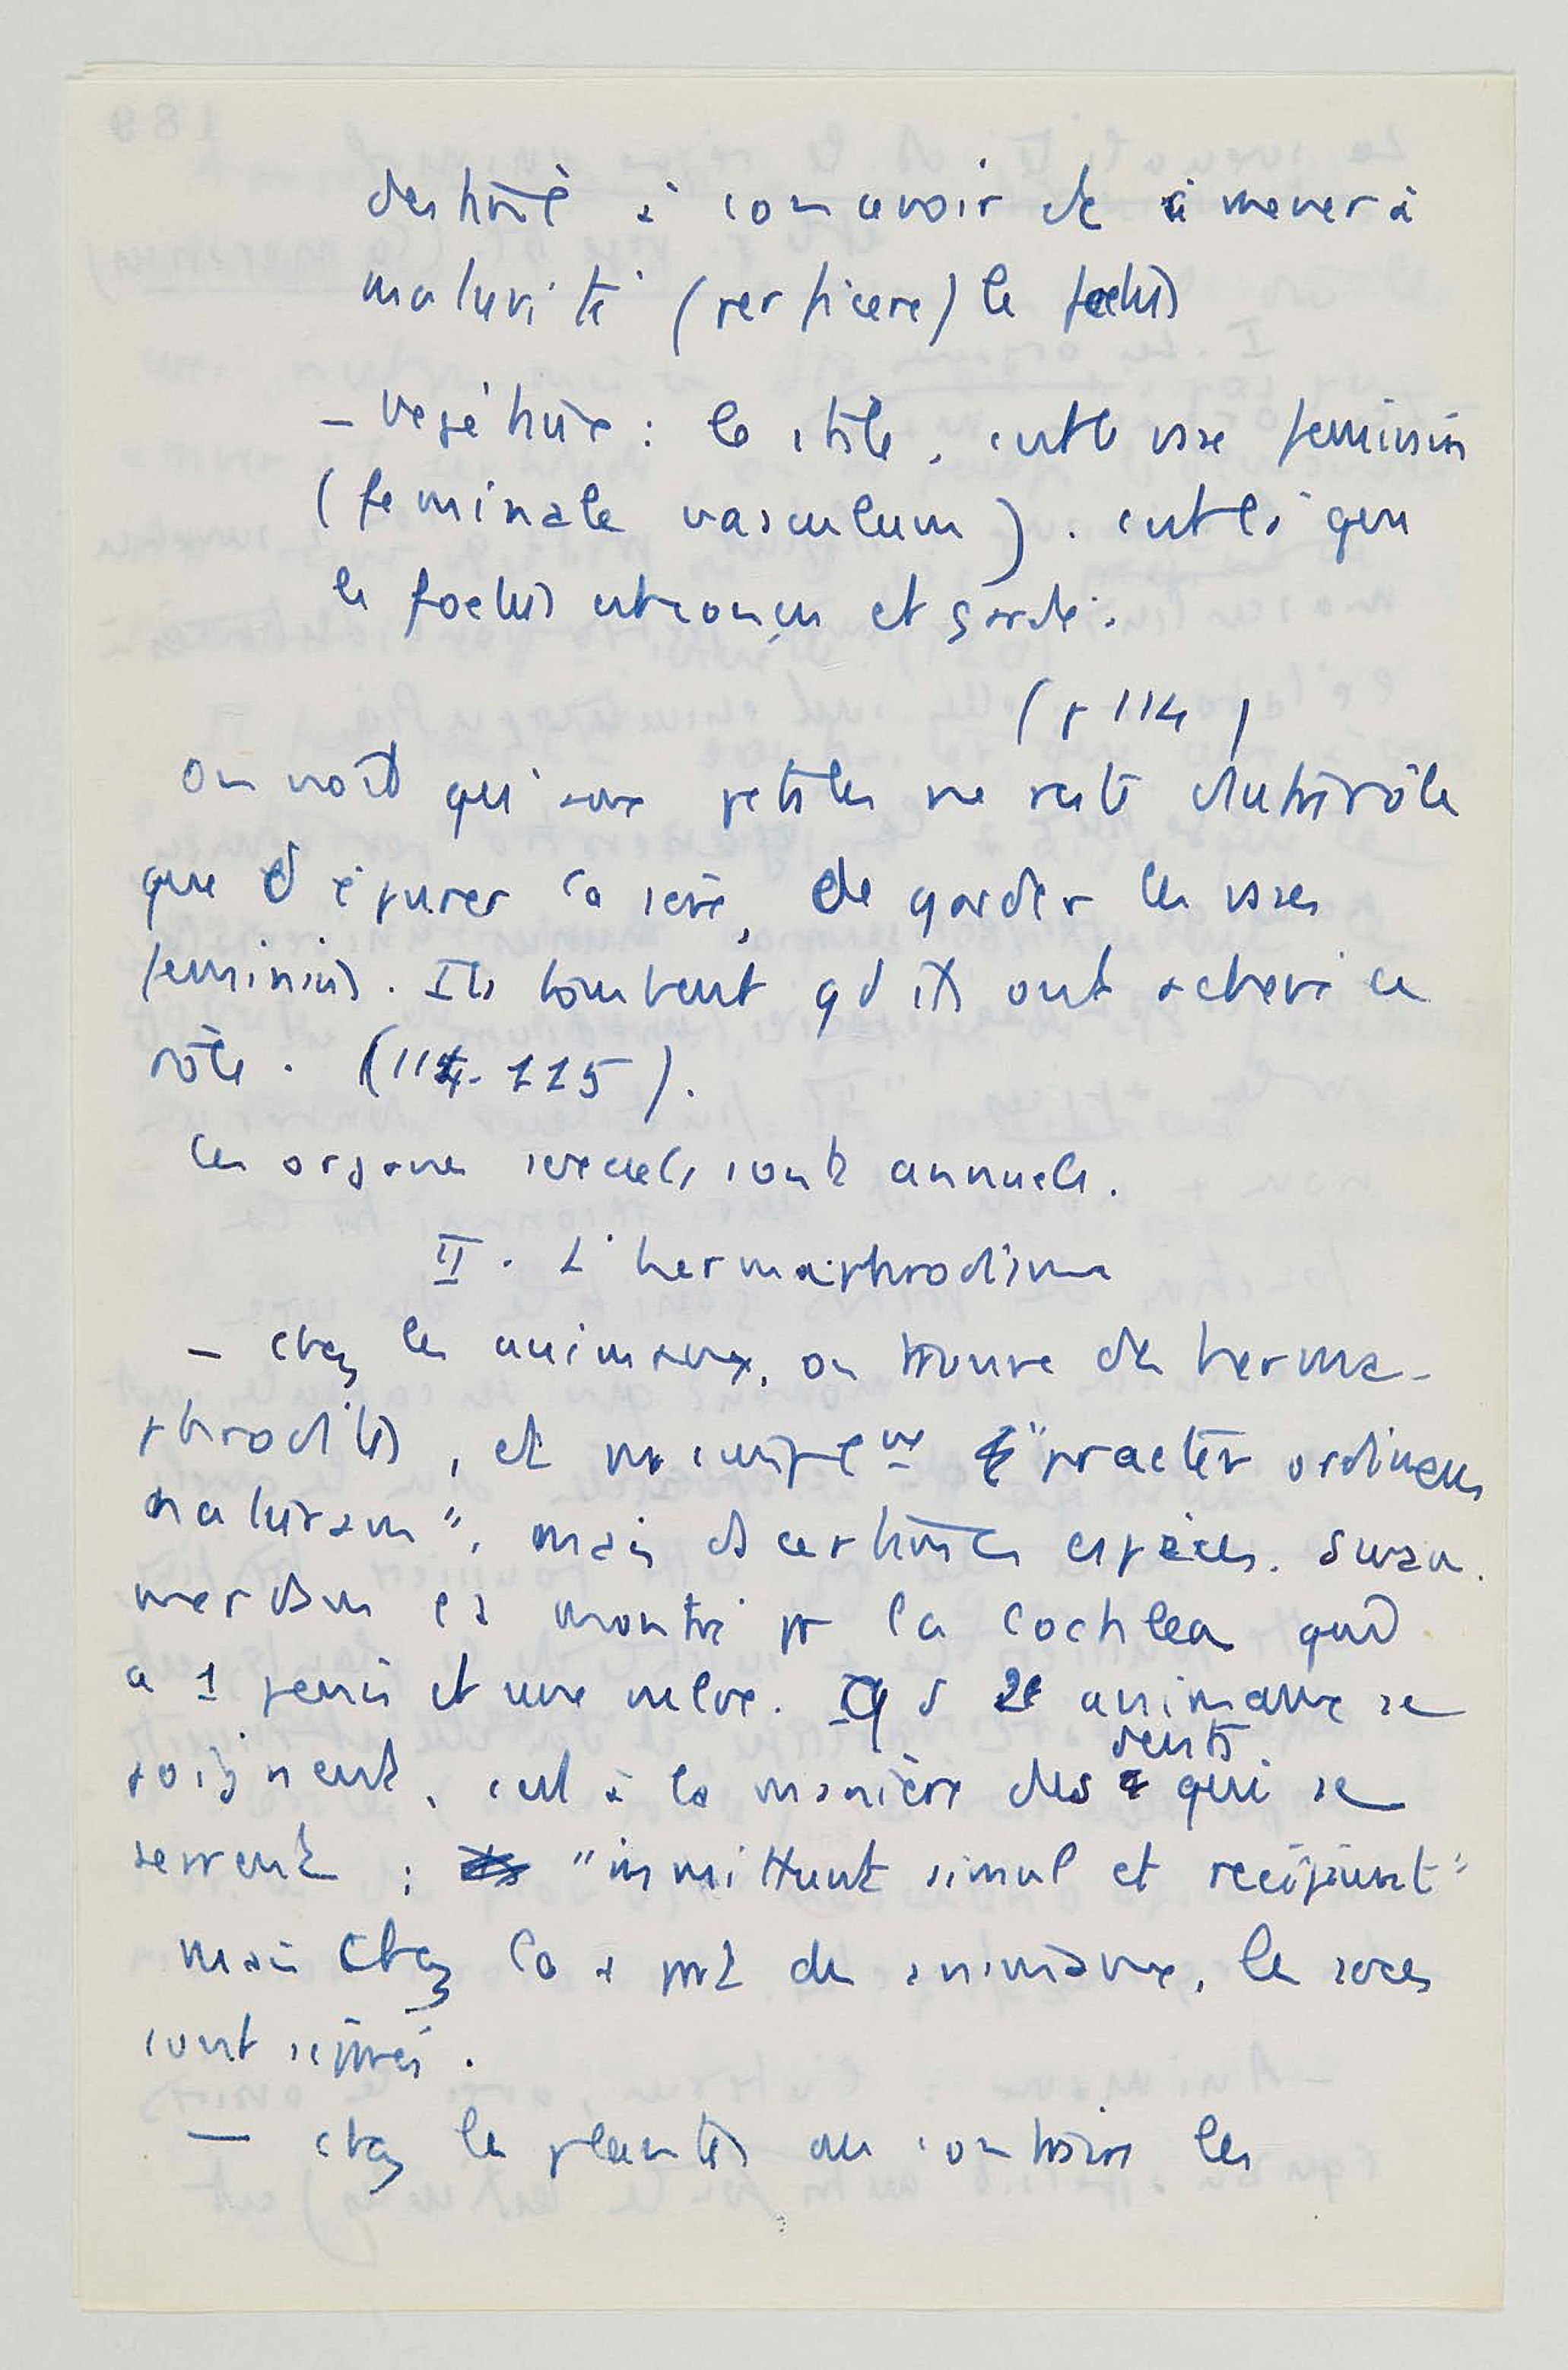 destiné à concevoir et à mener à
maturité (perficere) le foetus
- végétaux : le stile, c'est le vase feminin
(feminale vasculum). c'est là que
le foetus est conçu et gardé.
(p 114)
On voit qu'aux petales ne reste d'autre rôle
que d'épurer la seve, de garder les vases
feminins. Ils tombent qd ils ont achevé ce
rôle. (114-115).
Les organes sexuels sont annuels.
II. L'hermaphrodisme
- chez les animaux, on trouve des herma-
phrodites, et pas simplemt "praeter ordinem
naturam", mais ds certaines espèces. Swam-
merdam l'a montré pr la Cochlea qui
a 1 penis et une vulve. Qd 2 animaux se
joignent, c'est à la manière des dents qui se
serrent : "inmittunt simul et recipiunt"
mais chez la + part des animaux, les sexes
sont séparés.
- chez les plantes au contraire les